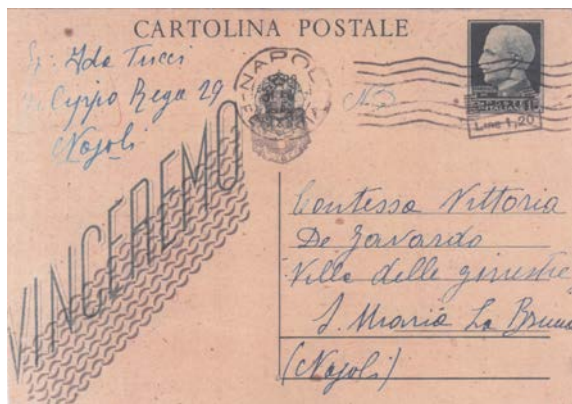 CARTOLINA POSTALE
Ida Tucci
Cippo Rega 29
Napoli
NAPOLI
Lire 1,20
VINCEREMO
Contessa Vittoria
De Gavardo
Villa delle ginestre
S. Maria La Bruna
(Napoli)